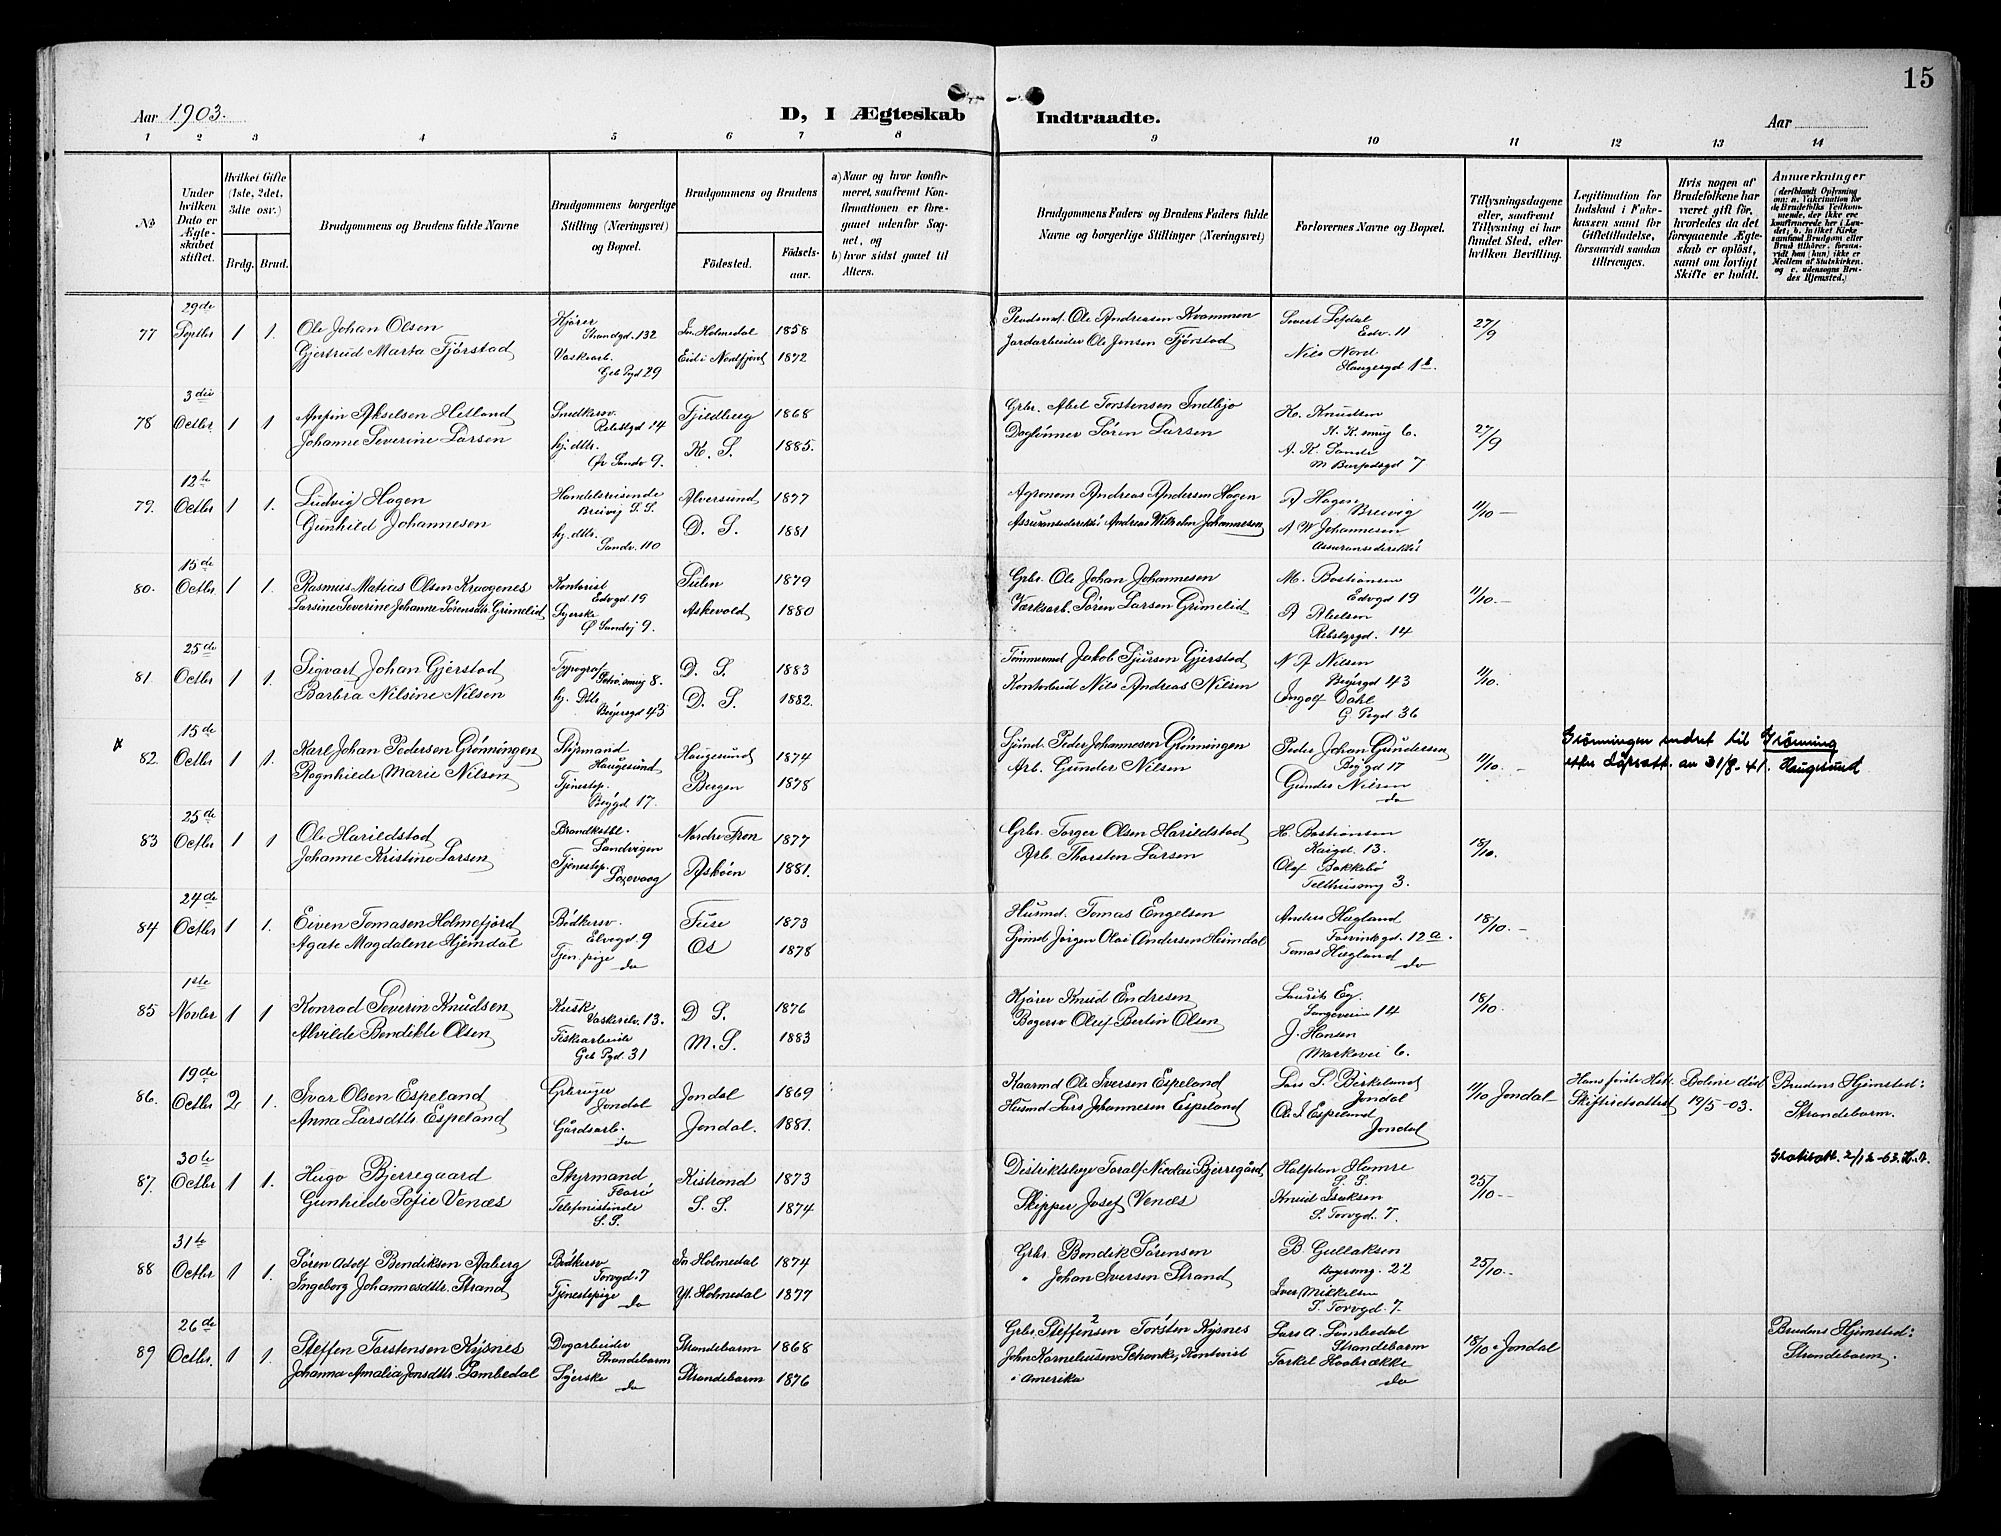 15
Aar 1903.
D, I Ægteskab Indtraadte.
Aar
1 2 3 4 5 6 7 8 9 10 11 12 13 14
No
Under hvilken Dato er Ægteskabet stiftet.
Hvilket Gifte (1ste, 2det, 3dte osv.)
Brdg. Brud.
Brudgommens og Brudens fulde Navne
Brudgommens borgerlige Stilling (Næringsvei) og Bopæl.
Brudgommens og Brudens
Födested. Födselsaar.
a) Naar og hvor konfirmeret, saafremt Konfirmationen er foregaaet udenfor Sognet, og
b) hvor sidst gaaet til Alters.
Brudgommens Faders og Brudens Faders fulde Navne og borgerlige Stillinger (Næringsvei)
Forlovernes Navne og Bopæl.
Tillysningsdagene eller, saafremt Tillysning ei har fundet Sted, efter hvilken Bevilling.
Legitimation for Indskud i Enkekassen samt for Giftetilladelse, forsaavidt saadan tiltrænges.
Hvis nogen af Brudefolkene har været gift för, hvorledes da det foregaaende Ægteskab er oplöst, samt om lovligt Skifte er holdt.
Anmærkninger
29de
77 Septbr 1 1. Ole Johan Olsen Kjører Strandgd. 132 In. Holmedal 1858 Ole Andreasen Kvammen Sivert Lefdal Edv. 11 27/9
Gjertrud Marta Fjørstad Vaskearb. Geb Pgd 29 Eid i Nordfjord 1872 Jordarbeider Ole Jensen Fjørstad Nils Nord Haugesgd 1
3die
78 Octbr. 1 1 Arfin Akselsen Hetland Smedkersv. Rebslgd 14 Fjeldberg 1868 Grbr. Abel Torstensen Indbjo K. Knudsen 6. 27/9
Johanne Severine Larsen hj. dttr. Ør Sandv 9. K. S. 1885. Daglønner Søren Larsen A. K. Sande 7
12te
79. Octbr 1 1. Ludvig Hagen Handelsreisende Breivig S. S. Alversund 1877 Agronom Andreas Andersen Hagen A Hagen Breivig 11/10 —
Gunhild Johannesen hj. dttr. Sandv. 110 D. S. 1881 Assuransedirektør Andreas Wilhelm Johannesen A W Johannesen Assuransedirektør
15de
80. Octbr 1 1. Rasmus Matias Olsen Kraagenes Kontorist Edvgd 19 Sulen 1879 Grbr. Ole Johan Johannesen M. Bastiansen Edvgd 19 11/10.—
Larsine Severine Johanne Sørensdtr Grimelid Syerske Ø Sandvj 9. Askevold 1880 Værksarb. Søren Larsen Grimelid A Nielsen 14
25de
81. Octbr 1 1. Sigvart Johan Gjerstad Typograf 8. D. S. 1883 Tømmermd Jakob Sjursen Gjerstad N A Nilsen 43 11/10.
Barbra Nilsine Nilsen hj. Dttr. 43 D. S. 1882. Kontorbud Nils Andreas Nilsen Ingolf Dahl G Pgd 36
15de
82. Octbr 1 1. Karl Johan Pedersen Grønningen Styrmand Haugesund Haugesund 1874 Sjømd. Peder Johannesen Grønningen Peder Johan Gundersen Bøgd 17 11/10. — Grönningen endret til Grönning
Ragnhilde Marie Nilsen Tjenestep. Bøgd 17. Bergen 1878 Arb. Gunder Nilsen Gunder Nilsen do an 31/8-41. Haugesund
25de
83 Octbr 1 1 Ole Harildstad Brandkstbl. Sandvigen Nordre Fron 1877 Grbr. Torger Olsen Harildstad H. Bastiansen Kaigd. 13. 18/10.
Johanne Kristine Larsen Tjenestep. Laxevaag Askøen 1881. Arb. Thorsten Larsen Olaf Bakkebø Telthusmg 3.
24de
84 Octbr 1 1. Eiven Tomasen Holmefjord Bødkersv. Elvegd 9 Fuse 1873 Husmd. Tomas Engelsen Anders Hagland 12 a. 18/10. —
Agate Magdalene Hjemdal Tjen. pige do Os 1878 Sjømd Jørgen Olai Andersen Heimdal Tomas Hagland do
1ste
85 Novbr 1 1 Konrad Severin Knudsen Kusk Vaskerelv. 13. D S. 1876 Kjører Knud Endresen Laurits Eg. 14 18/10.
Alvilde Bendikte Olsen Fiskearbeide Geb Pgd 31 M. S. 1883 Bøgersv Oluf Bertin Olsen J. Hansen Markevei 6.
19de
86. Octbr 2 1. Ivar Olsen Espeland Gbruger Jondal Jondal 1869 Kaarmd Ole Iversen Espeland Lars S. Birkeland Jondal 11/10 Jondal Hans første Hst. Boline død Brudens Hjemsted:
Anna Larsdttr. Espeland Gårdsarb. do Jondal. 1881. Husmd Lars Johannesen Espeland Ole I Espeland Jondal Skifteretsattest 19/5-03. Strandebarm.
30te
87. Octbr 1 1. Hugo Bjerregaard Styrmand Florø Kistrand 1873 Distriktslæge Toralf Nicolai Bjerregård Halfdan Hamre S. S. 25/10.— 2/12-63. H. A.
Gunhilde Sofie Venæs Telefonistinde S. S. S. S. 1874 Skipper Josef Venæs Knud Isaksen S. Torvgd. 7.
31te
88 Octbr 1 1. Søren Adolf Bendiksen Aaberg Bødkersv Torvgd. 7 In Holmedal 1874 Grbr. Bendik Sørensen B. Gullaksen 22 25/10.—
Ingeborg Johannesdttr. Strand Tjenestepige do Yt. Holmedal 1877 " Johan Iversen Strand Iver Mikkelsen S. Torvgd. 7.
26de
89 Octbr. 1 1. Steffen Torstensen Kysnes Dagarbeider Strandebarm Strandebarm 1868 Grbr. Steffensen Torsten Kysnes Lars A. Lambedal Strandebarm 18/10 i Jondal Brudens Hjemsted:
Johanna Amalia Jonsdttr. Lambedal Syerske do Strandebarm 1876 John Korneliusen Schanke, Kontorist Torkel Haabrække do Strandebarm.
i Amerika